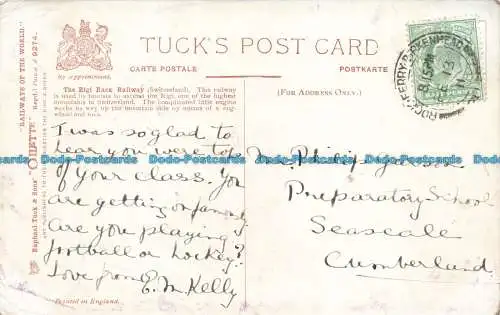 TUCK'S POST CARD
CARTE POSTALE
POSTKARTE
By Appointment.
(FOR ADDRESS ONLY.)
The Rigi Rack Railway (Switzerland). This railway
is used by tourists to ascend the Rigi, one of the highest
mountains in Switzerland. The complicated little engine
works its way up the mountain side by means of a cog-
wheel and rack.
"RAILWAYS OF THE WORLD."
"OILETTE"
Raphael Tuck & Sons'
9274.
I was so glad to
hear you were top
of your class. You
are getting on famously
are you playing
football or hockey?
Love from E. M. Kelly
Printed in England.
Philip
Preparatory School
Seascale
Cumberland
Dodo-Postcards Dodo-Postcards Dodo-Postcards Dodo-Postcards